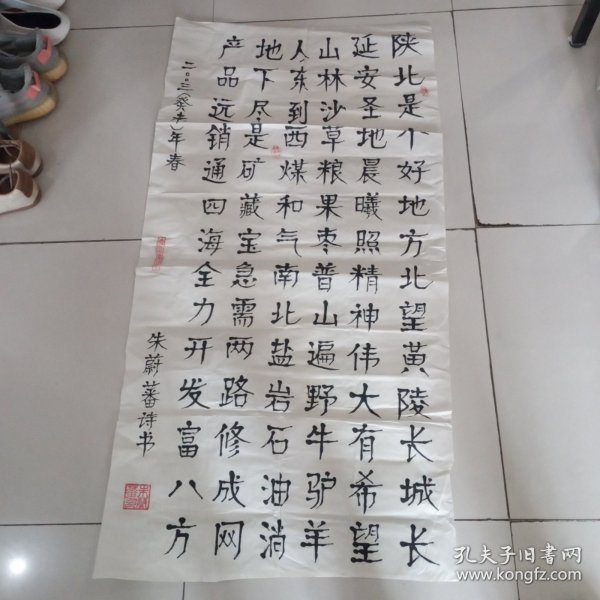 陕北是个好地方北望黄陵长城长
延安圣地晨曦照精神伟大有希望
山林沙草粮果枣普山遍野牛驴羊
从东到西煤和气南北盐岩石油淌
地下尽是矿藏宝急需两路修成网
产品远销通四海全力开发富八方
二00三(癸)年春
朱蔚蕃诗书
孔夫子旧书网
www.kongfz.com